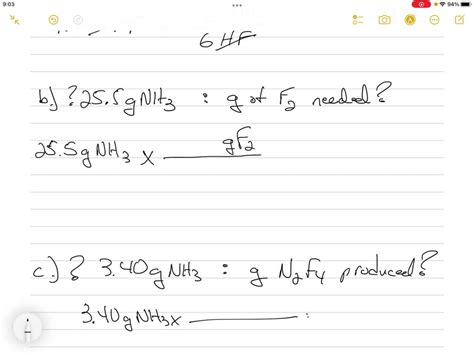 9:03
94%
6 HF
b.) ? 25.5g NH3 : g of F2 needed?
gF2
25.5g NH3 x
c.) ? 3.40g NH3 : g N2F4 produced?
3.40g NH3x